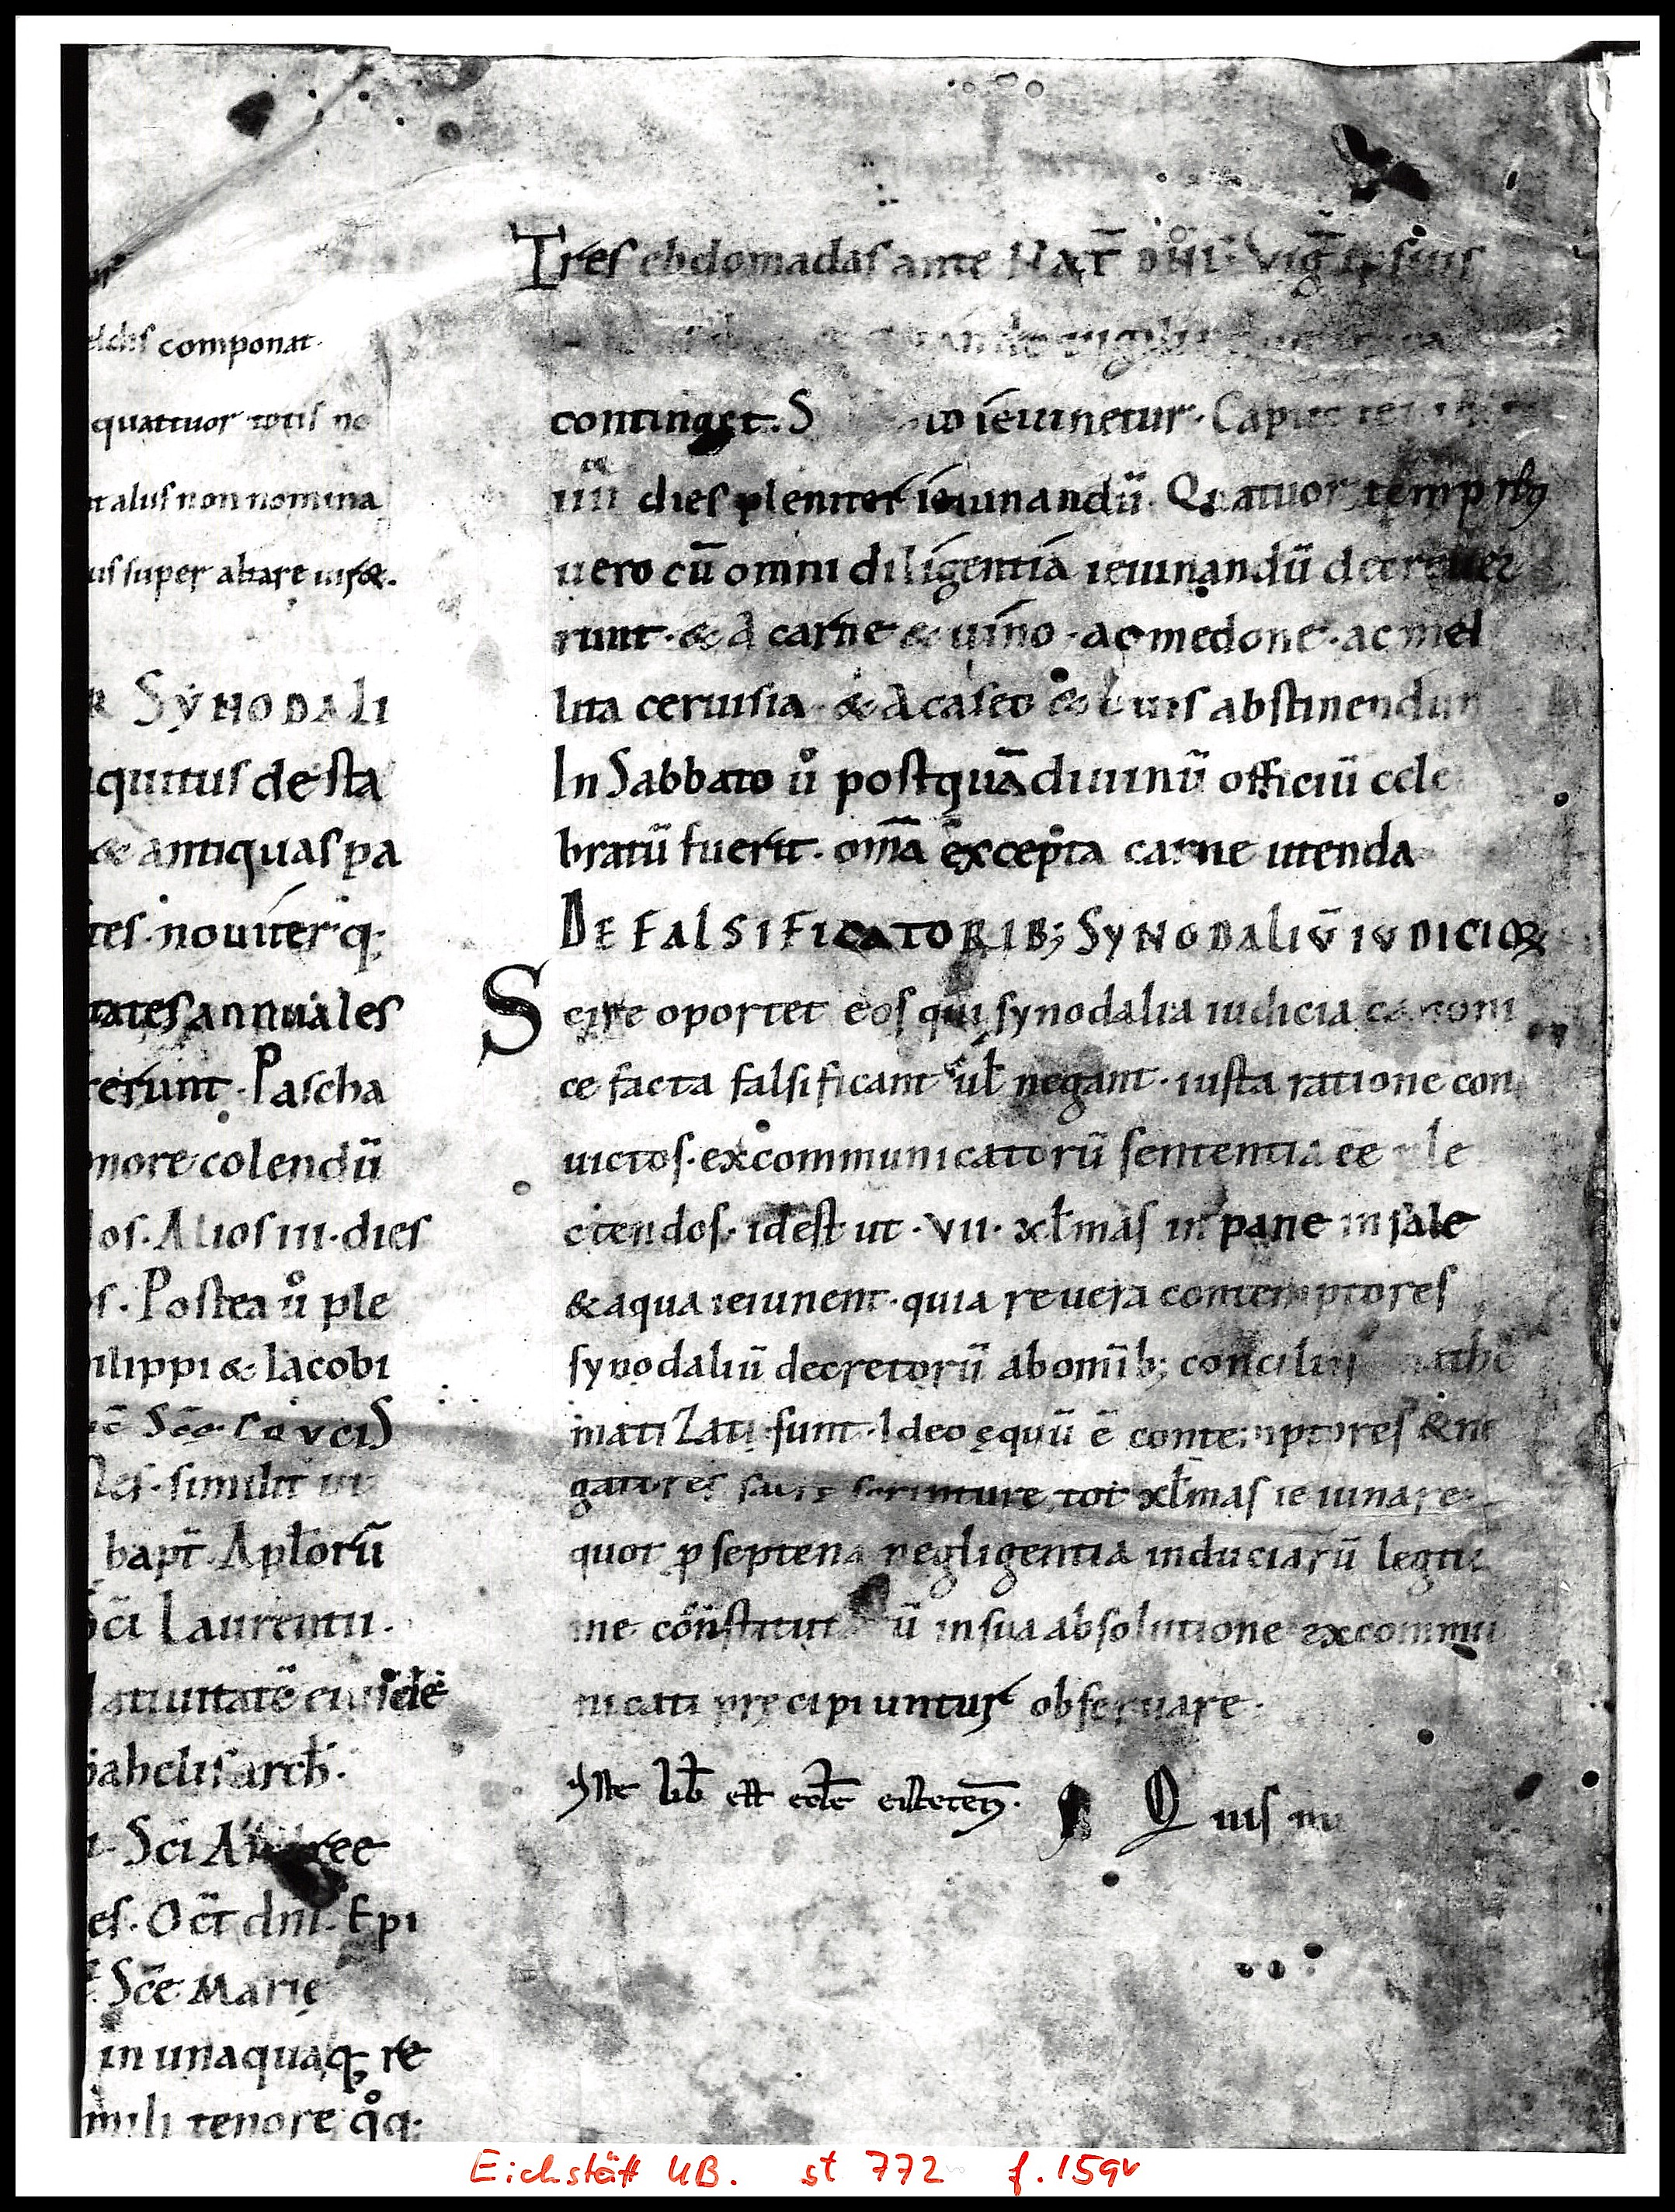 componat.
quattuor totis no
alus non nomina
us super altare uis&.
R SYNODALI
quitus desta
& antiquas pa
tes. nouiterq;
tates annuales
rerunt. Pascha
nore colendū
los. Alios III. dies
s. Postea u̾ ple
ilippi & Iacobi
Scē CRVCIS
les. similit̄ ui
bapt̄. Apl̄orū
Sc̄i Laurentii.
atiuitatē eiusdē
ahelis arch̄.
Sc̄i Andree
es. Oct̄ dn̄i. Epi
Scē Marię
in unaquaq; re
mili tenore qͦq;
Tres ebdomadas ante NAT̄ DN̄I. Vig̅ ipsius
uigili
continget. S ieiunetur. Caput
IIII dies pleniter ieiunandū. Quatuor temp ribꝫ
uero cū omni diligentia ieiunandū decreuer
runt. & A carne & uino. ac medone. ac mel
lita ceruisia. & A caseo & uis abstinendum
In Sabbato u̾ postquā diuinū officiū cele
bratū fuerit. om̄a excepta carne utenda
DE FALSIFICATORIB; SYNODALIŪ IUDICIOꝜ
Scire oportet eos qui synodalia iudicia canoni
ce facta falsificant ul̄ negant. iusta ratione con
uictos. excommunicatorū sententia eē le
ctendos. idest ut. VII. xl̄mas in pane in sale
& aqua ieiunent. quia reuera contemptores
synodaliū decretorū ab om̄ib; conciliis
matiZati sunt. Ideo ęquū ē contemptores & ne
gatores scripture tot xl̄mas ieiunare.
quot p septena negligentia induciarū legiti
me constitut ū in sua absolutione excommu
nicati pręcipiuntur obseruare.
Iste lib̄ est eccl̄e eistetens̄.
Quis
Eichstätt UB. st 772 f. 159v